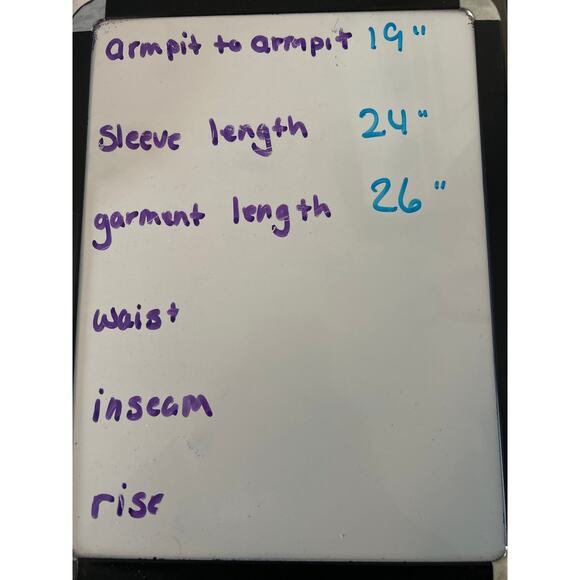 armpit to armpit 19"
sleeve length 24"
garment length 26"
waist
inseam
rise